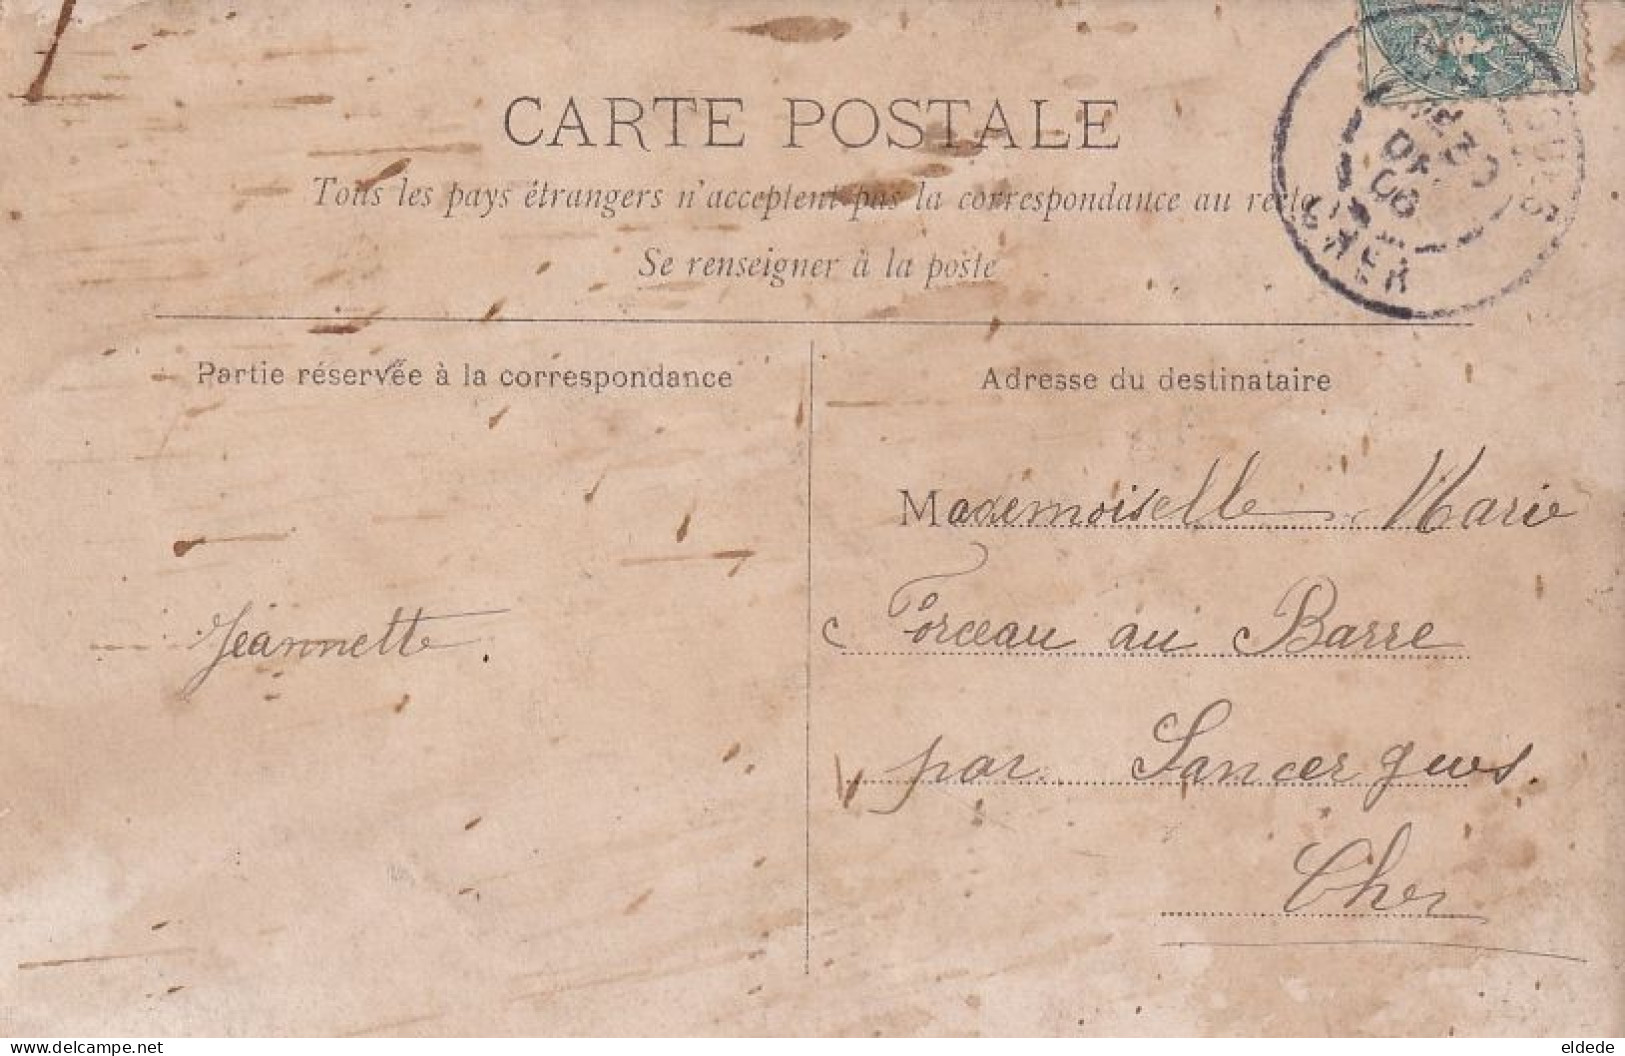 CARTE POSTALE
Tous les pays étrangers n'acceptent pas la correspondance au recto
Se renseigner à la poste
CHER
Partie réservée à la correspondance
Adresse du destinataire
Mademoiselle Marie
Forceau au Barre
par Sancergues.
Cher
Jeannette.
delcampe.net
eldede